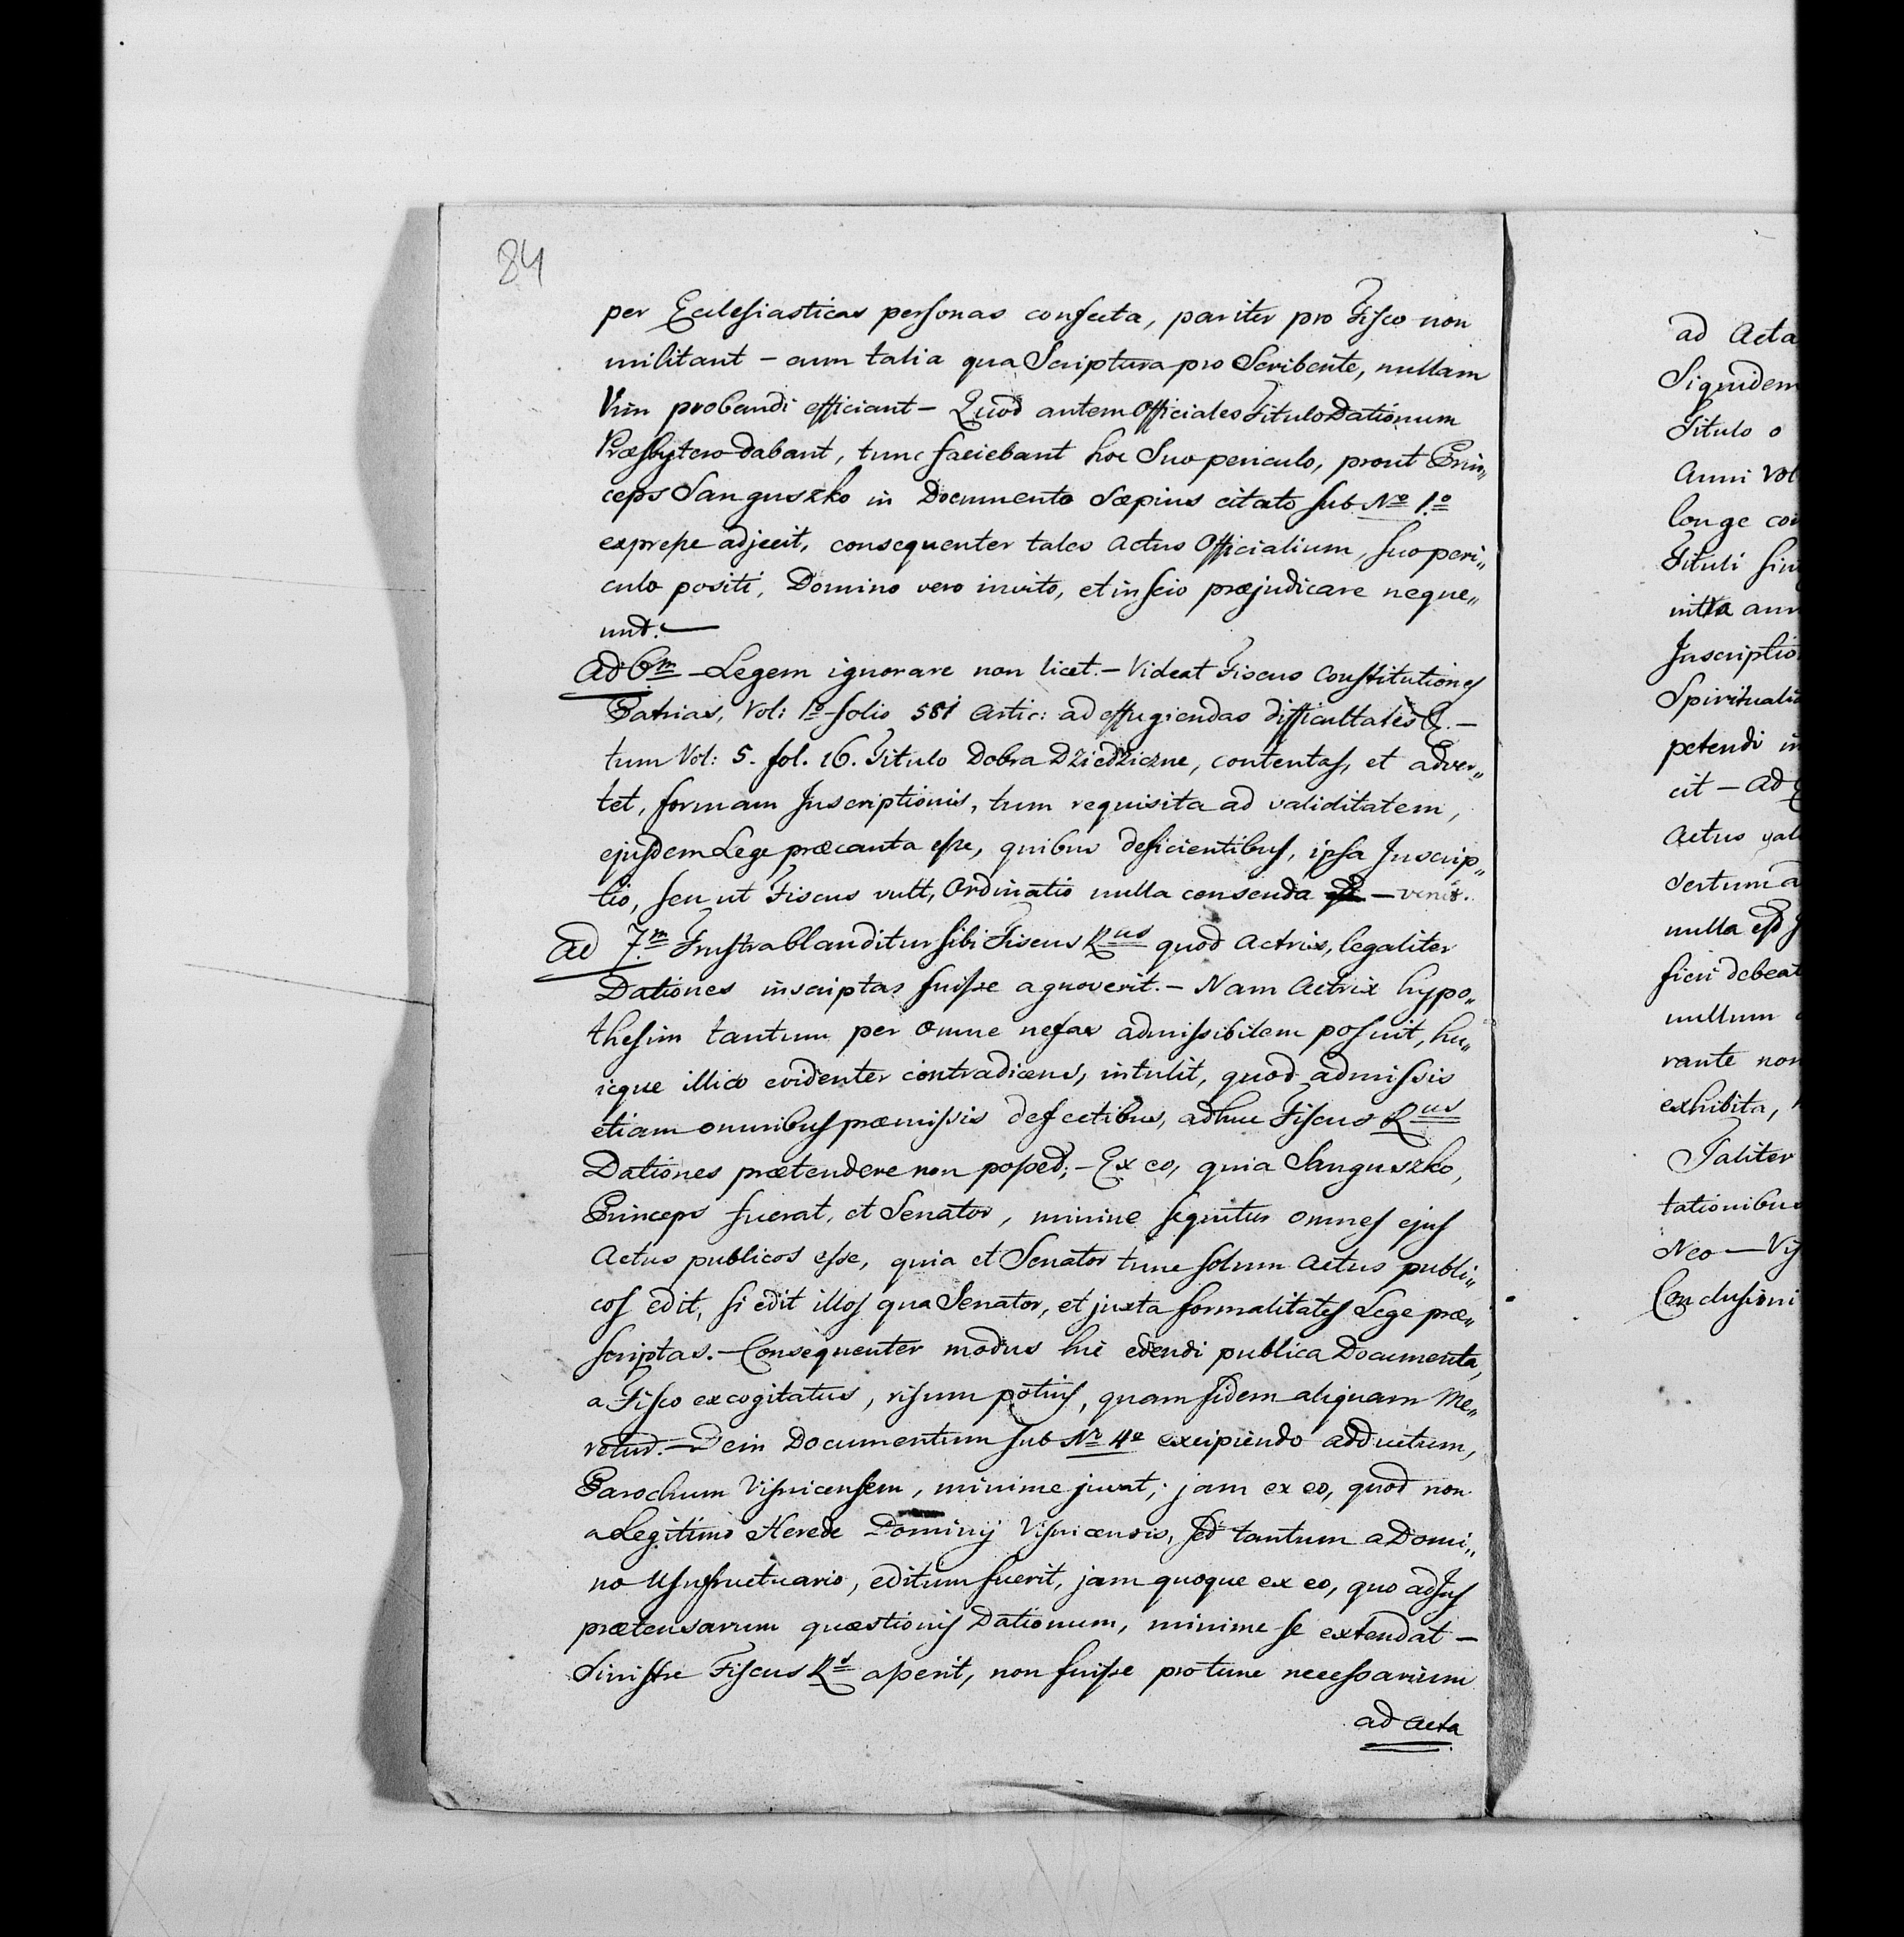 84
per Ecclesiasticas personas confecta, pariter pro Fisco non
militant – cum talia qua Scriptura pro Scribente, nullam
Vim probandi efficiant – Quod autem Officiales Titulo Dationum
Præsbytero dabant, tunc faciebant hoc Suo periculo, prout Prin„
ceps Sanguszko in Documento Sæpius citato sub No 1o
expresse adjecit, consequenter tales Actus Officialium, suo peri„
culo positi, Domino vero invito, et inscio præjudicare neque„
unt. —
Ad 6m – Legem ignorare non licet. – Videat Fiscus Constitutiones
Patrias, Vol: 1o folio 581 Artic: ad effugiendas difficultates &. –
tum Vol: 5. fol. 16. Titulo Dobra Dziedziczne, contentas, et adver„
tet, formam Inscriptionis, tum requisita ad validitatem,
ejusdem Lege præcauta esse, quibus deficientibus, ipsa Inscrip„
tio, seu ut Fiscus vult, Ordinatio nulla censenda – venit.
Ad 7.m Frustra blanditur sibi Fiscus Rus quod Actrix, legaliter
Dationes inscriptas fuisse agnoverit. – Nam Actrix hypo„
thesim tantum per omne nefas admissibilem posuit, hu„
icque illico evidenter contradicens, intulit, quod admissis
etiam omnibus præmissis defectibus, adhuc Fiscus Rus
Dationes prætendere non posset; – Ex eo, quia Sanguszko,
Princeps fuerat, et Senator, minime sequitur omnes ejus
Actus publicos esse, quia et Senator tunc solum Actus publi„
cos edit, si edit illos qua Senator, et juxta formalitates Lege præ„
scriptas. – Consequenter modus hic edendi publica Documenta,
a Fisco excogitatus, risum potius, quam fidem aliquam Me„
retur. – Dein Documentum sub Nr 4o excipiendo adductum,
Parochum Visnicensem, minime juvat; jam ex eo, quod non
a Legitimo Herede Dominij Visnicensis, sed tantum a Domi„
no Usufructuario, editum fuerit, jam quoque ex eo, quo ad Jus
prætensarum quæstionis Dationum, minime se extendat –
Sinistre Fiscus Rs asserit, non fuisse pro tunc necessarium
ad Acta
ad Acta
Siquidem
Titulo o
Anni Vol
longe
Tituli
intra
Spirituali
petendi
cit – Ad
Actus
nulla est
fieri debeat
nullum
rante non
exhibita,
Taliter
tationibus
Neo – Vis
Conclusioni